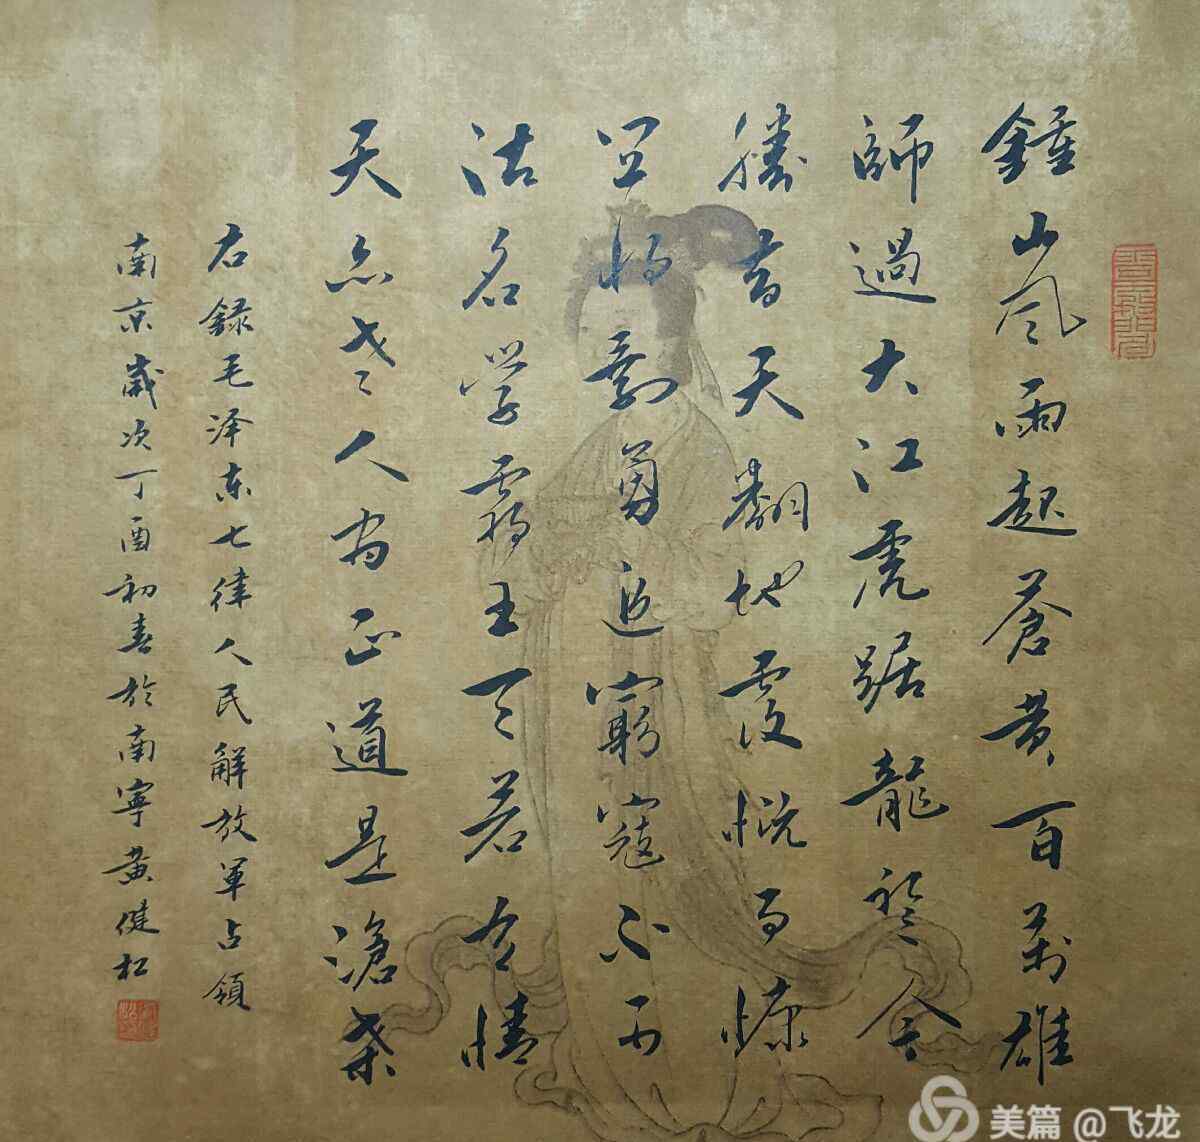 鍾山風雨起蒼黄百萬雄
師過大江虎踞龍盤今
勝昔天翻地覆慨而慷
宜將剩勇追窮寇不可
沽名學霸王天若有情
天亦老人間正道是滄桑
右録毛泽东七律人民解放軍占領
南京歲次丁酉初春於南寧黄健松
美篇 @飞龙